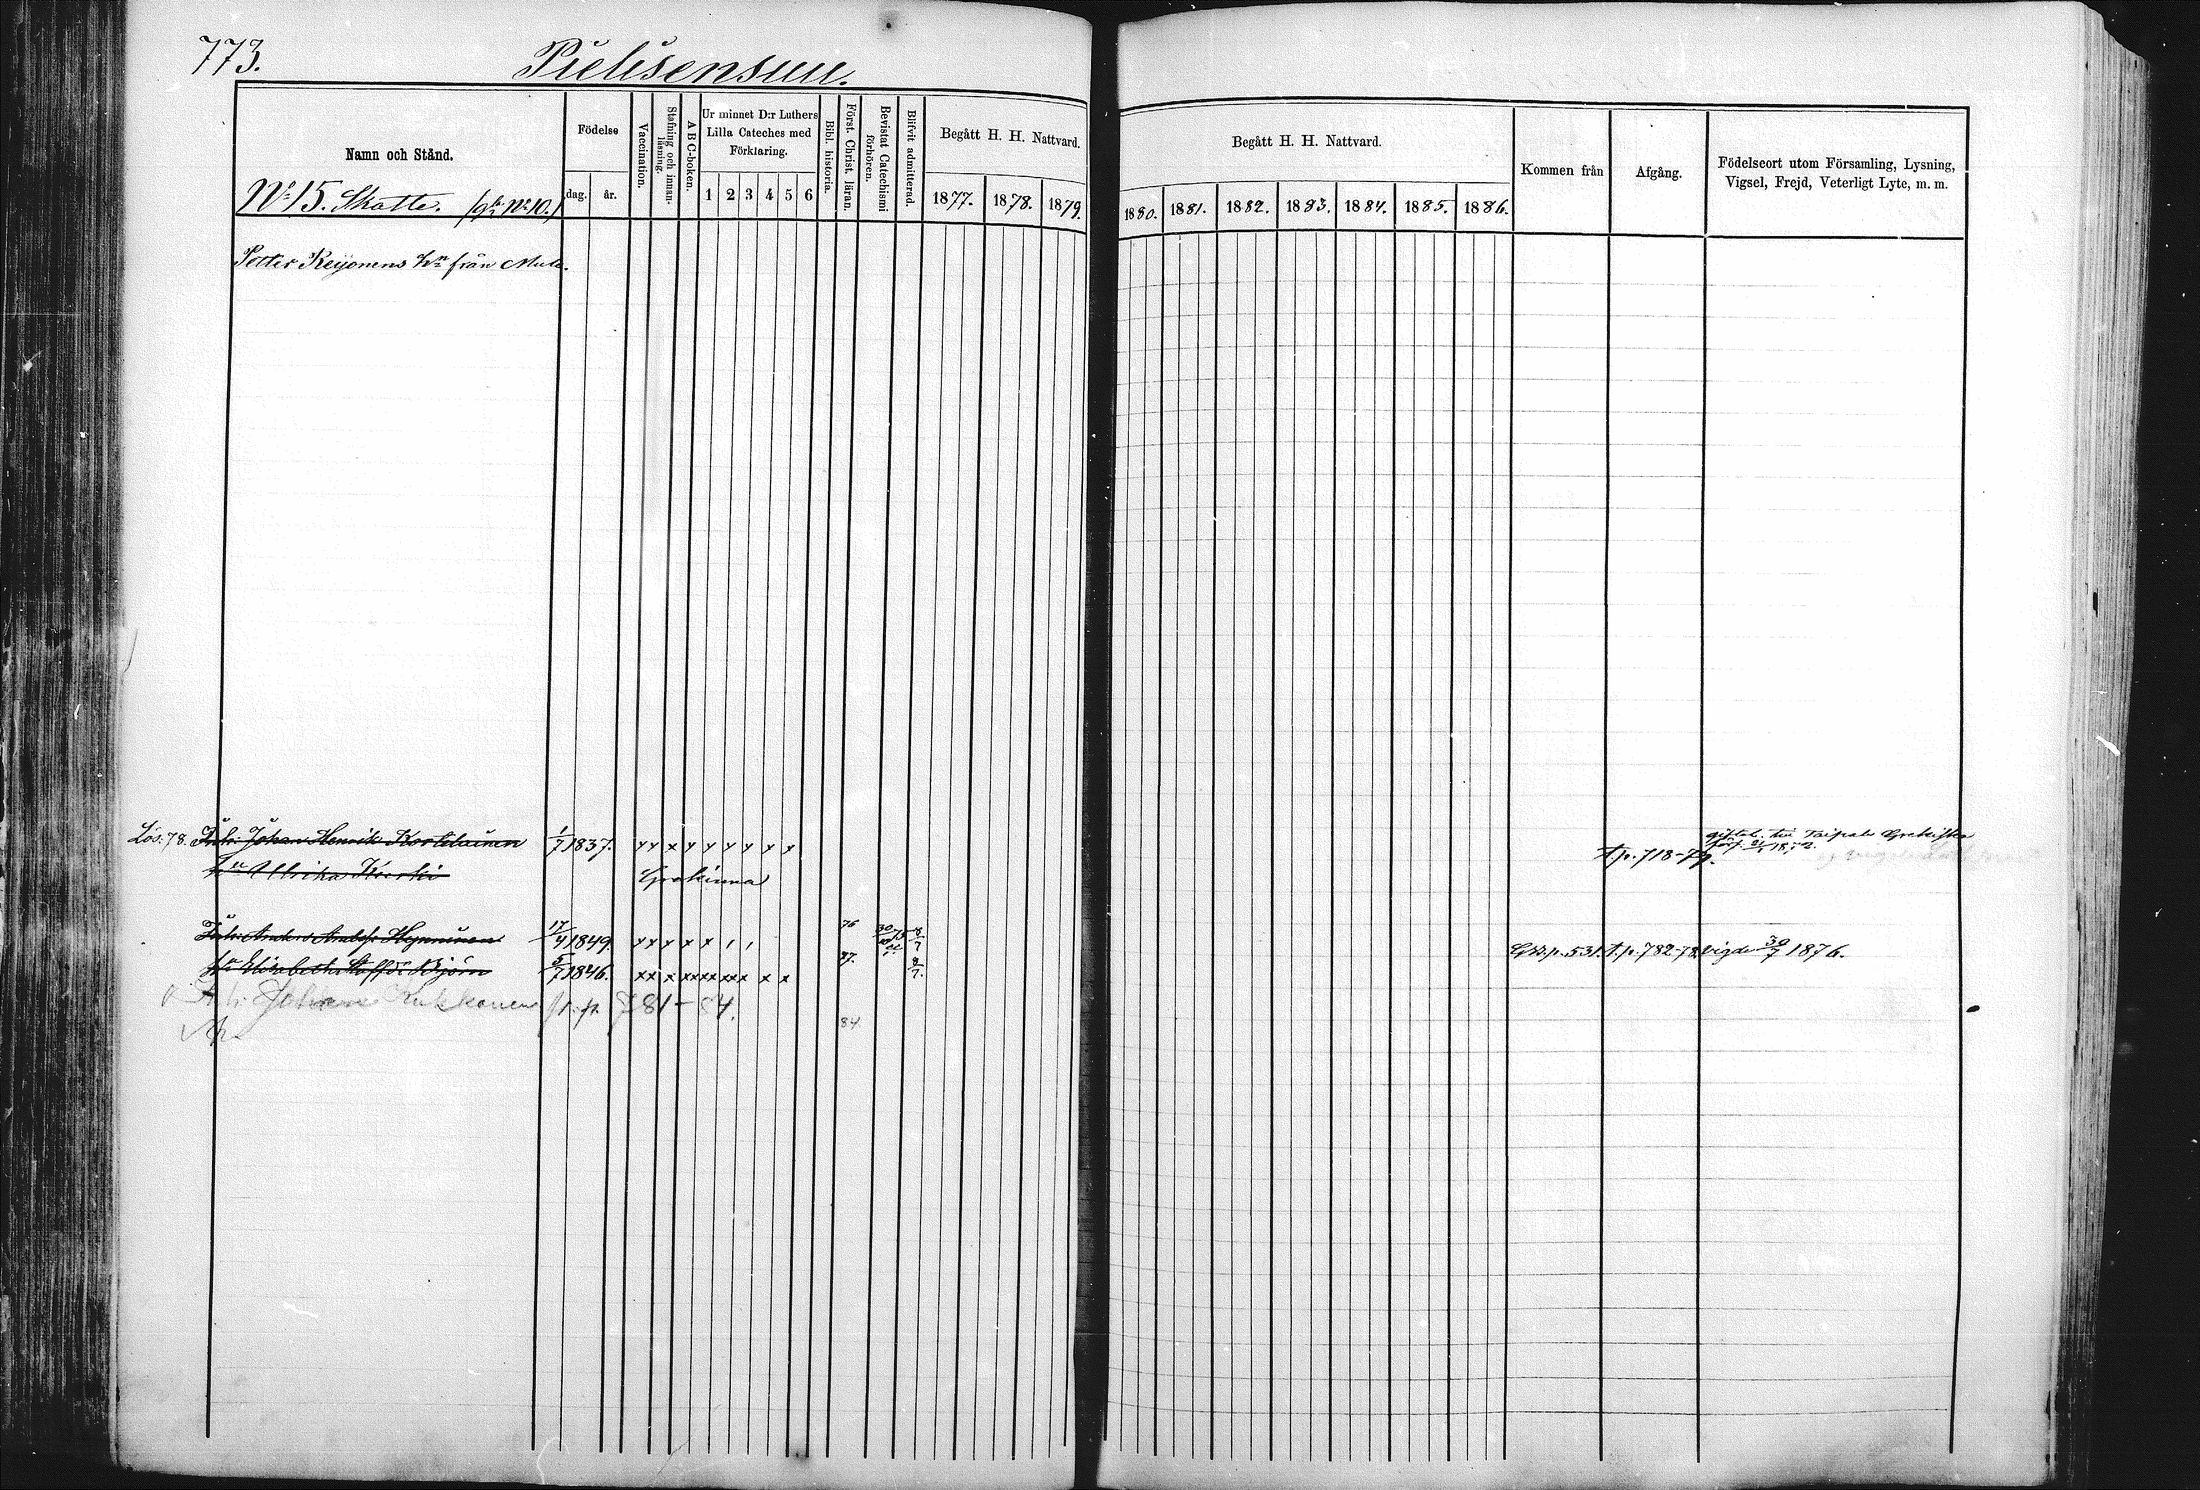 773.
Pielisensuu.
Namn och Stånd.
Födelse
dag. år.
Vaccination.
Stafning och innan-läsning.
A B C-boken.
Ur minnet D:r Luthers
Lilla Cateches med
Förklaring.
1 2 3 4 5 6
Bibl. historia.
Först. Christ. läran.
Bevistat Catechismi förhören.
Blifvit admitterad.
Begått H. H. Nattvard.
1877. 1878. 1879.
Begått H. H. Nattvard.
1880. 1881. 1882. 1883. 1884. 1885. 1886.
Kommen från
Afgång.
Födelseort utom Församling, Lysning,
Vigsel, Frejd, Veterligt Lyte, m. m.
No 15. Skatte. No 10.
Petter Keijonens från
Lös. 78. Johan Henrik Kortelainen 1/7 1837. x x x x x x x x p. 718-79.
Ullrika Koerki
Anders Heyninen 17/4 1849. x x x x x 76 8/7 p. 531. p. 782-78 vigde 30/7 1876.
Elisabeth Björn 5/7 1846. x x x x x x x x x x x 8/7.
Johan Kukkonen p. 781-84.
84